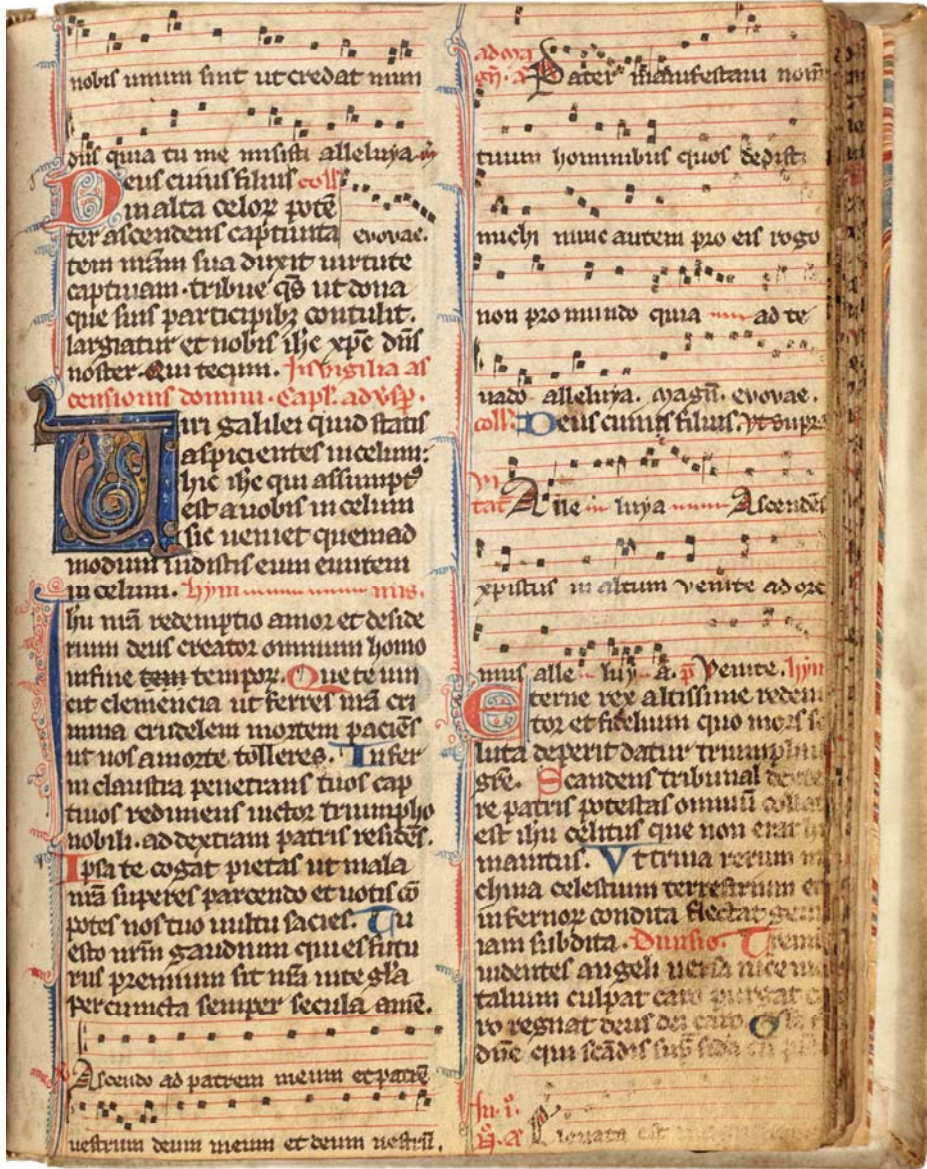 nobis unum sint ut credat mun
dus quia tu me misisti alleluya.
Deus cuius filius coll
in alta celoꝝ potē
ter ascendens captiuita evovae.
tem nr̄am sua duxit uirtute
captiuam. tribue qs̄ ut dona
que suis participibꝫ contulit.
largiatur et nobis ihc xpc dn̄s
noster. Qui tecum. In vigilia as
censionis domini. Capl. ad vsp̄.
Uiri galilei quid statis
aspicientes in celum:
hic ihc qui assumptꝰ
est a uobis in celum
sic ueniet quemad
modum uidistis eum euntem
in celum. hymnus.
Ihu nr̄a redemptio amor et deside
rium deus creator omnium homo
in fine tem tempoꝝ. Que te uin
cit clemencia ut ferres nr̄a cri
mina crudelem mortem paciēs
ut nos a morte tolleres. Infer
ni claustra penetrans tuos cap
tiuos redimens uictor triumpho
nobili. ad dextram patris residēs.
Ipsa te cogat pietas ut mala
nr̄a superes parcendo et uotis cō
potes nos tuo uultu sacies. Tu
esto nr̄m gaudium qui es futu
rus premium sit nr̄a in te gl̄a
per cuncta semper secula amē.
Ascendo ad patrem meum et patrē
uestrum deum meum et deum uestrū.
ad ma
gn̄. a Pater manifestaui nom̄
tuum hominibus quos dedisti
michi nunc autem pro eis rogo
non pro mundo quia ad te
uado alleluya. magn̄. evovae.
coll. Deus cuius filius. vt supra
Vi
tat Alleluya Ascendēs
xpistus in altum venite adore
mus alleluya. p̄ Venite. hyn
Eterne rex altissime redem
tor et fidelium quo mors so
luta deperit datur triumphus
gr̄e. Scandens tribunal dexte
re patris potestas omniū
est ihu celitus que non erat
manitus. Vt trina rerum ma
china celestium terrestrium et
infernoꝝ condita flectat genu
iam subdita. Diuisio. Tremunt
uidentes angeli uersa uice mor
talium culpat caro purgat ca
ro regnat deus dei caro. Gl̄a
dn̄e qui scādis sup̄ sida
In. i.
Eleuata est